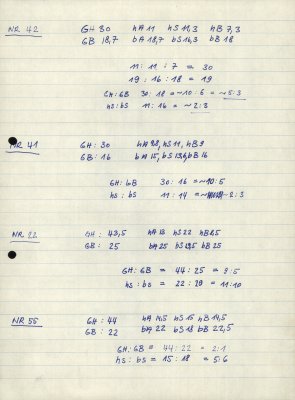 NR. 42 GH 30 hA 11 hS 11,3 hB 7,3
GB 18,7 bA 18,7 bS 16,3 bB 18
11 : 11 : 7 = 30
19 : 16 : 18 = 19
GH:GB 30 : 18 = ~10 : 6 = ~5:3
hs:bs 11 : 16 = ~2:3
NR 41 GH : 30 hS 11, hB 9
GB : 16 bA 15, bB 16
GH : GB 30 : 16 = ~10:5
hs : bs 11 : 14 = ~2:3
NR 22 GH : 43,5 hA 13 hS 22 hB 8,5
GB : 25 bA 25 bS 19,5 bB 25
GH : GB = 44 : 25 = 9:5
hs : bs = 22 : 20 = 11:10
NR 55 GH : 44 hA 14,5 hS 15 hB 14,5
GB : 22 bA 22 bS 18 bB 22,5
GH : GB = 44 : 22 = 2:1
hs : bs = 15 : 18 = 5:6